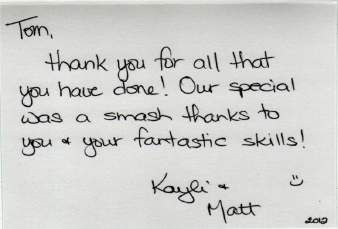 Tom,
thank you for all that
you have done! Our special
was a smash thanks to
you & your fantastic skills!
Kayli &
Matt
2012